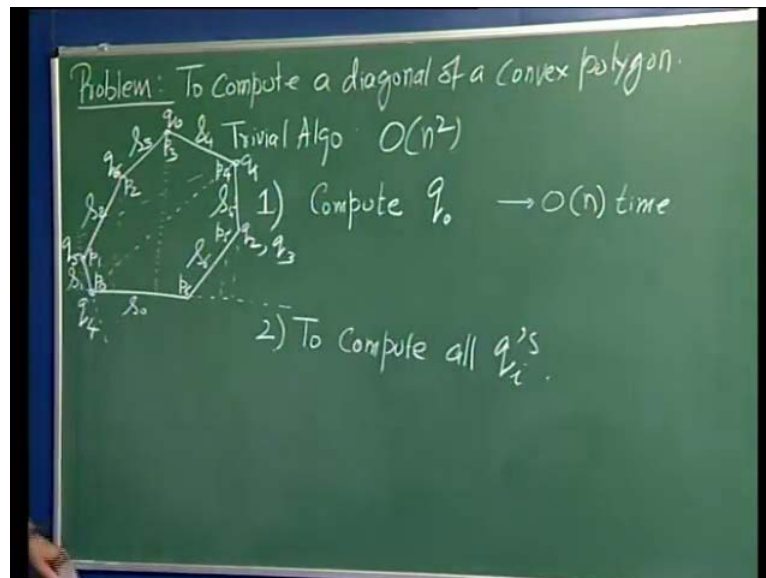 Problem: To compute a diagonal of a convex polygon.
Trivial Algo O(n²)
1) Compute q₀ → O(n) time
2) To compute all qᵢ's.
q₀
s₃ s₄
p₃
q₆ p₂
p₄ q₁
s₂ s₅
q₅ p₁
p₅ q₂, q₃
s₁ p₀
s₆
p₆
q₄ s₀